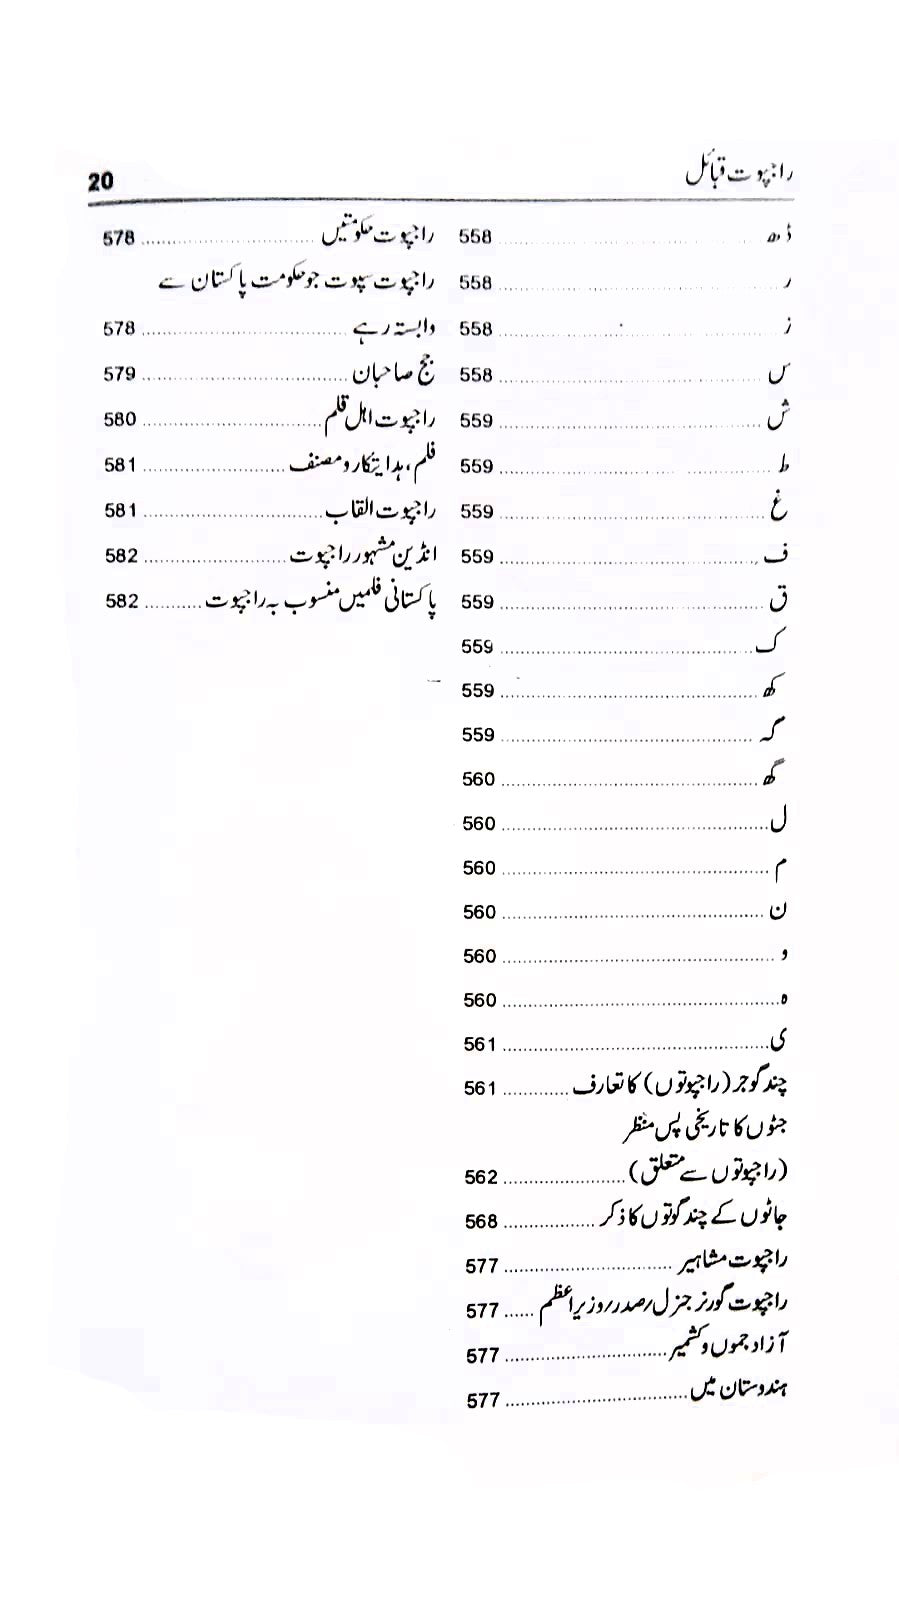 راجپوت قبائل
20
ڈھ ........ 558
ر ........ 558
ز ........ 558
س ........ 558
ش ........ 559
ط ........ 559
غ ........ 559
ف ........ 559
ق ........ 559
ک ........ 559
کھ ........ 559
گ ........ 559
گھ ........ 560
ل ........ 560
م ........ 560
ن ........ 560
و ........ 560
ہ ........ 560
ی ........ 561
چند گوجر (راجپوتوں) کا تعارف ........ 561
جٹوں کا تاریخی پس منظر
(راجپوتوں سے متعلق) ........ 562
جاٹوں کے چند گوتوں کا ذکر ........ 568
راجپوت مشاہیر ........ 577
راجپوت گورنر جنرل/صدر/وزیراعظم ...... 577
آزاد جموں و کشمیر ........ 577
ہندوستان میں ........ 577
راجپوت حکومتیں ........ 578
راجپوت سپوت جو حکومت پاکستان سے
وابستہ رہے ........ 578
جج صاحبان ........ 579
راجپوت اہل قلم ........ 580
فلم، ہدایتکار و مصنف ........ 581
راجپوت القاب ........ 581
انڈین مشہور راجپوت ........ 582
پاکستانی فلمیں منسوب بہ راجپوت ........ 582